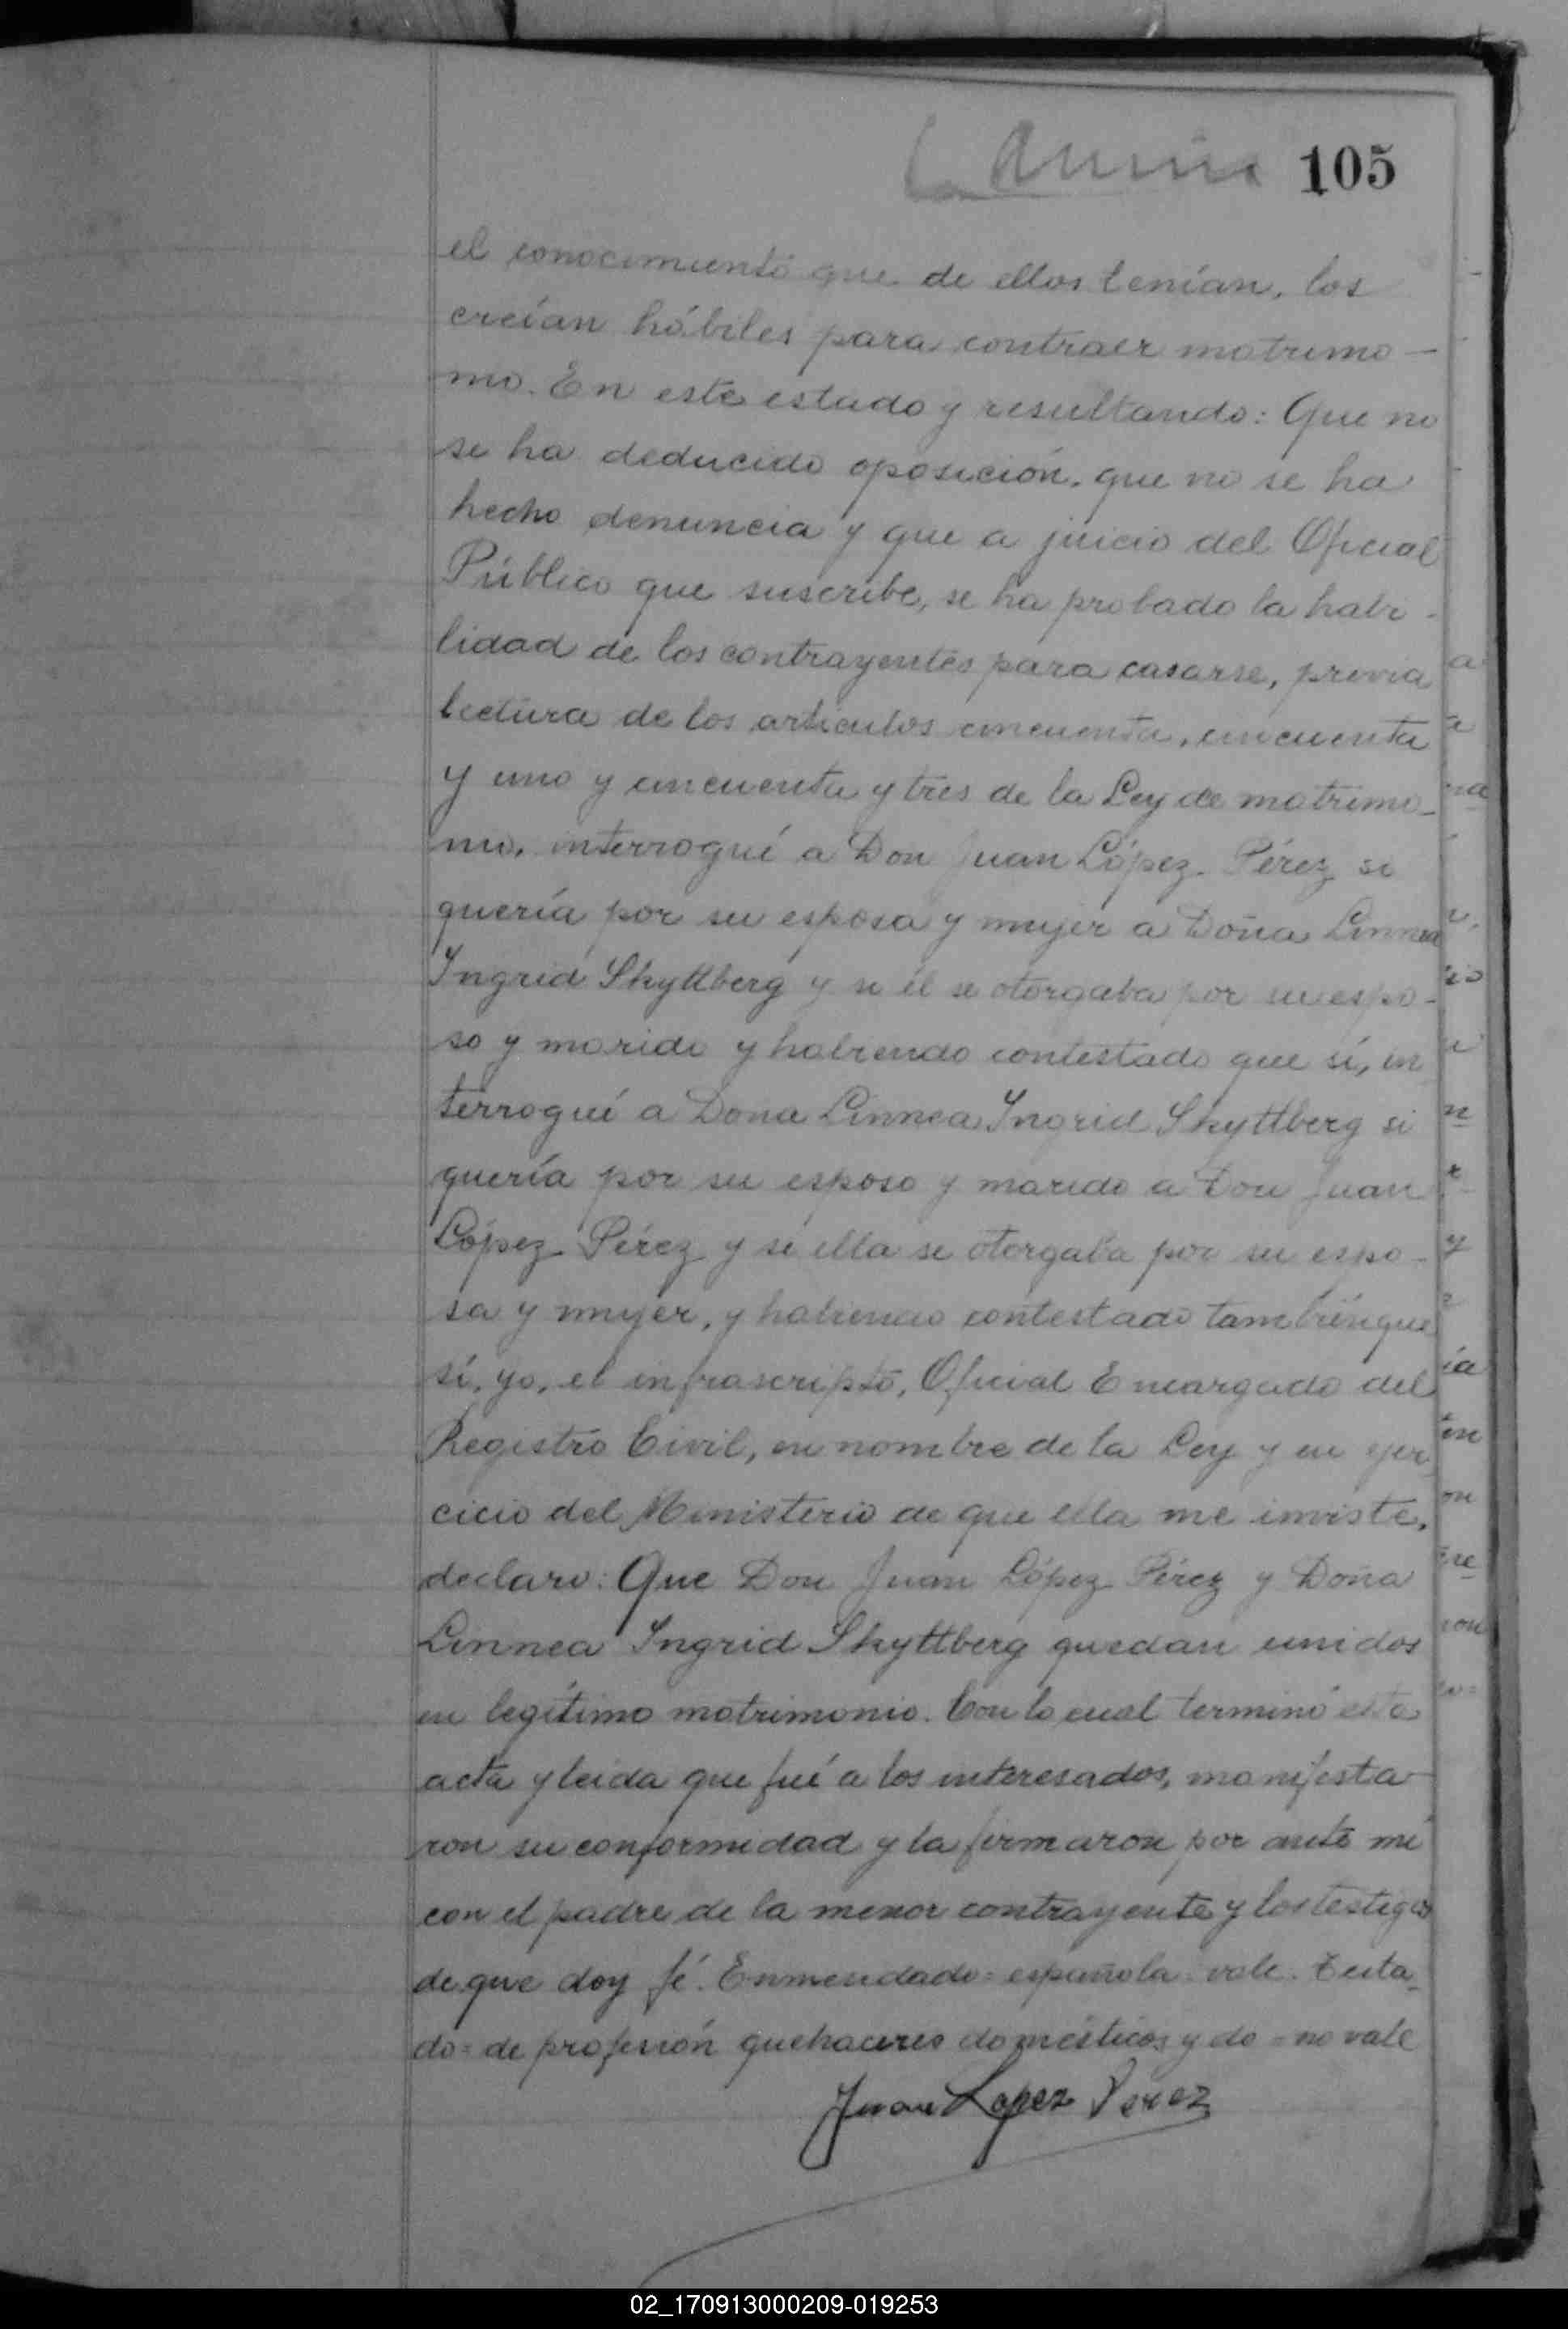 105
el conocimiento que de ellos tenían, los
creían hábiles para contraer matrimo-
nio. En este estado y resultando: Que no
se ha deducido oposición, que no se ha
hecho denuncia y que a juicio del Oficial
Público que suscribe, se ha probado la habi-
lidad de los contrayentes para casarse, previa
lectura de los artículos cincuenta, cincuenta
y uno y cincuenta y tres de la Ley de matrimo-
nio, interrogué a Don Juan López Pérez si
quería por su esposa y mujer a Doña Linnea
Ingrid Skyttberg y si él se otorgaba por su espo-
so y marido y habiendo contestado que sí, in
terrogué a Dona Linnea Ingrid Skyttberg si
quería por su esposo y marido a Don Juan
López Pérez y si ella se otorgaba por su espo-
sa y mujer, y habiendo contestado también que
sí, yo, el infrascripto, Oficial Encargado del
Registro Civil, en nombre de la Ley y en ejer
cicio del Ministerio de que ella me inviste,
declaro: Que Don Juan López Pérez y Doña
Linnea Ingrid Skyttberg quedan unidos
en legítimo matrimonio. Con lo cual terminó esta
acta y leida que fué a los interesados, manifesta-
ron su conformidad y la firmaron por ante mí
con el padre de la menor contrayente y los testigos
de que doy fé. Enmendado=española=vale. Testa-
do=de profesión quehaceres domésticos y do=no vale
Juan Lopez Perez
02_170913000209-019253